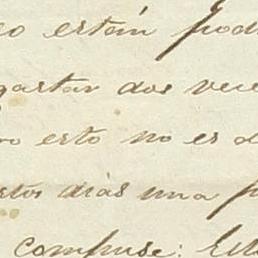 están pod
gastar dos vece
esto no es d
stos dias una p
compuse: Est